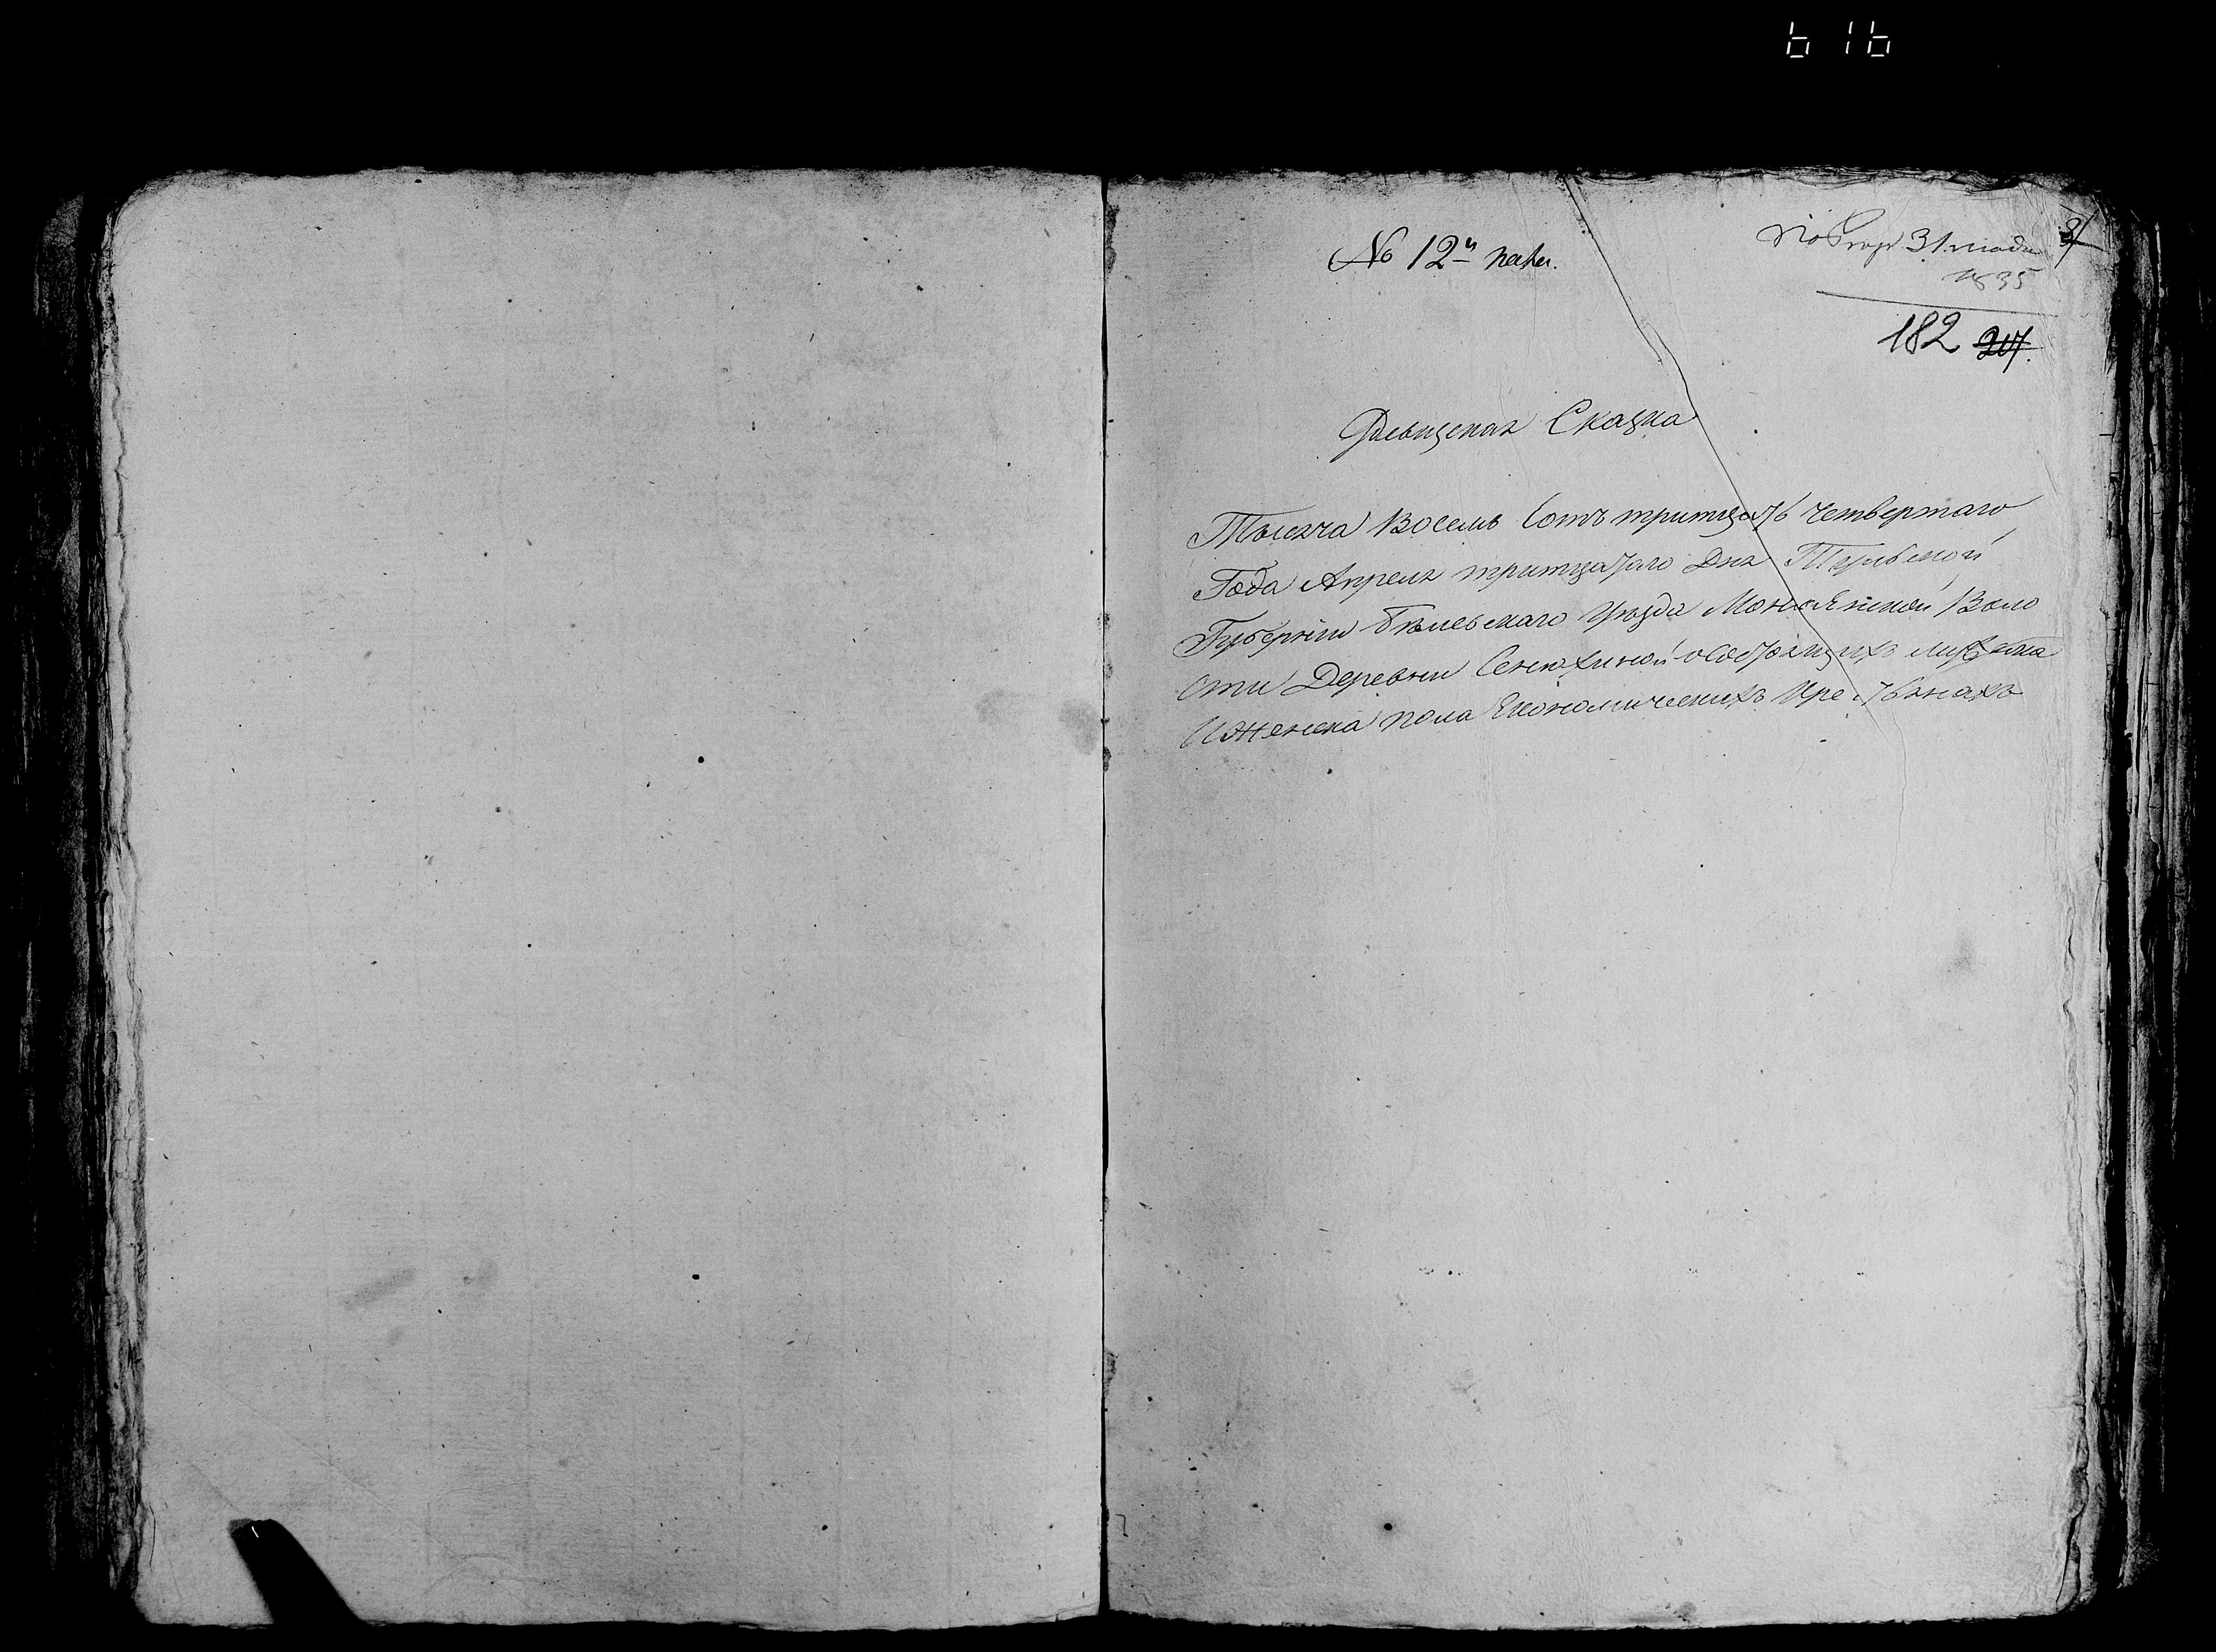 616
№ 12й
31 1835
182 217.
Ревиская Сказка
Тысяча Восемь Сотъ тритцать четвертаго
Года Апреля тритцатаго Дня Тульской
Губерніи Бѣлевскаго Уѣзда Воло
сти Деревни Сенюхиной о состоящихъ мужеска
И женска пола Економическихъ Крестьянахъ